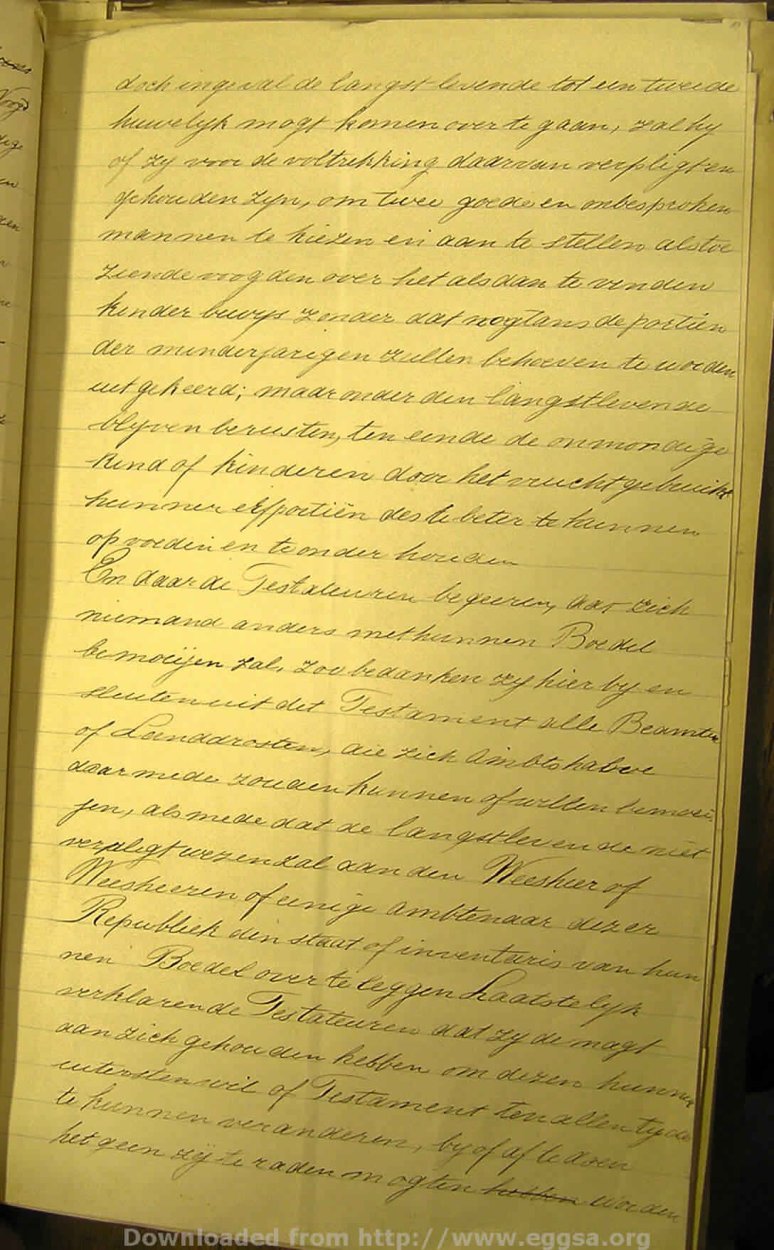 doch ingeval de langst levende tot een tweede
huwelyk mogt komen over te gaan, zal hy
of zy voor de voltrekking daarvan verpligt en
gehouden zyn, om twee goede en onbesproken
mannen te kiezen en aan te stellen als toe
ziende voogden over het alsdan te vinden
kinder bewys zonder dat nogtans de portiën
der minderjarigen zullen behoeven te worden
uitgekeerd; maar onder den langstlevende
blyven berusten, ten einde de onmondige
kind of kinderen door het vruchtgebruik
hunner erfportiën des te beter te kunnen
opvoeden en te onder houden
En daar de Testateuren begeeren, dat zich
niemand anders met hunnen Boedel
bemoeijen zal, zoo bedanken zy hier by en
sluiten uit dit Testament alle Beamten
of Landdrosten, die zich Ambtshalve
daarmede zouden kunnen of willen bemoei
jen, alsmede dat de langstlevende niet
verpligt wezen zal aan den Weesheer of
Weesheeren of eenige ambtenaar dezer
Republiek den staat of inventaris van hun
nen Boedel over te leggen Laatstelyk
verklarende Testateuren dat zy de magt
aan zich gehouden hebben om dezen hunnen
uitersten wil of Testament ten allen tyde
te kunnen veranderen, by of af te doen
het geen zy te raden mogten hebben worden
Downloaded from http://www.eggsa.org